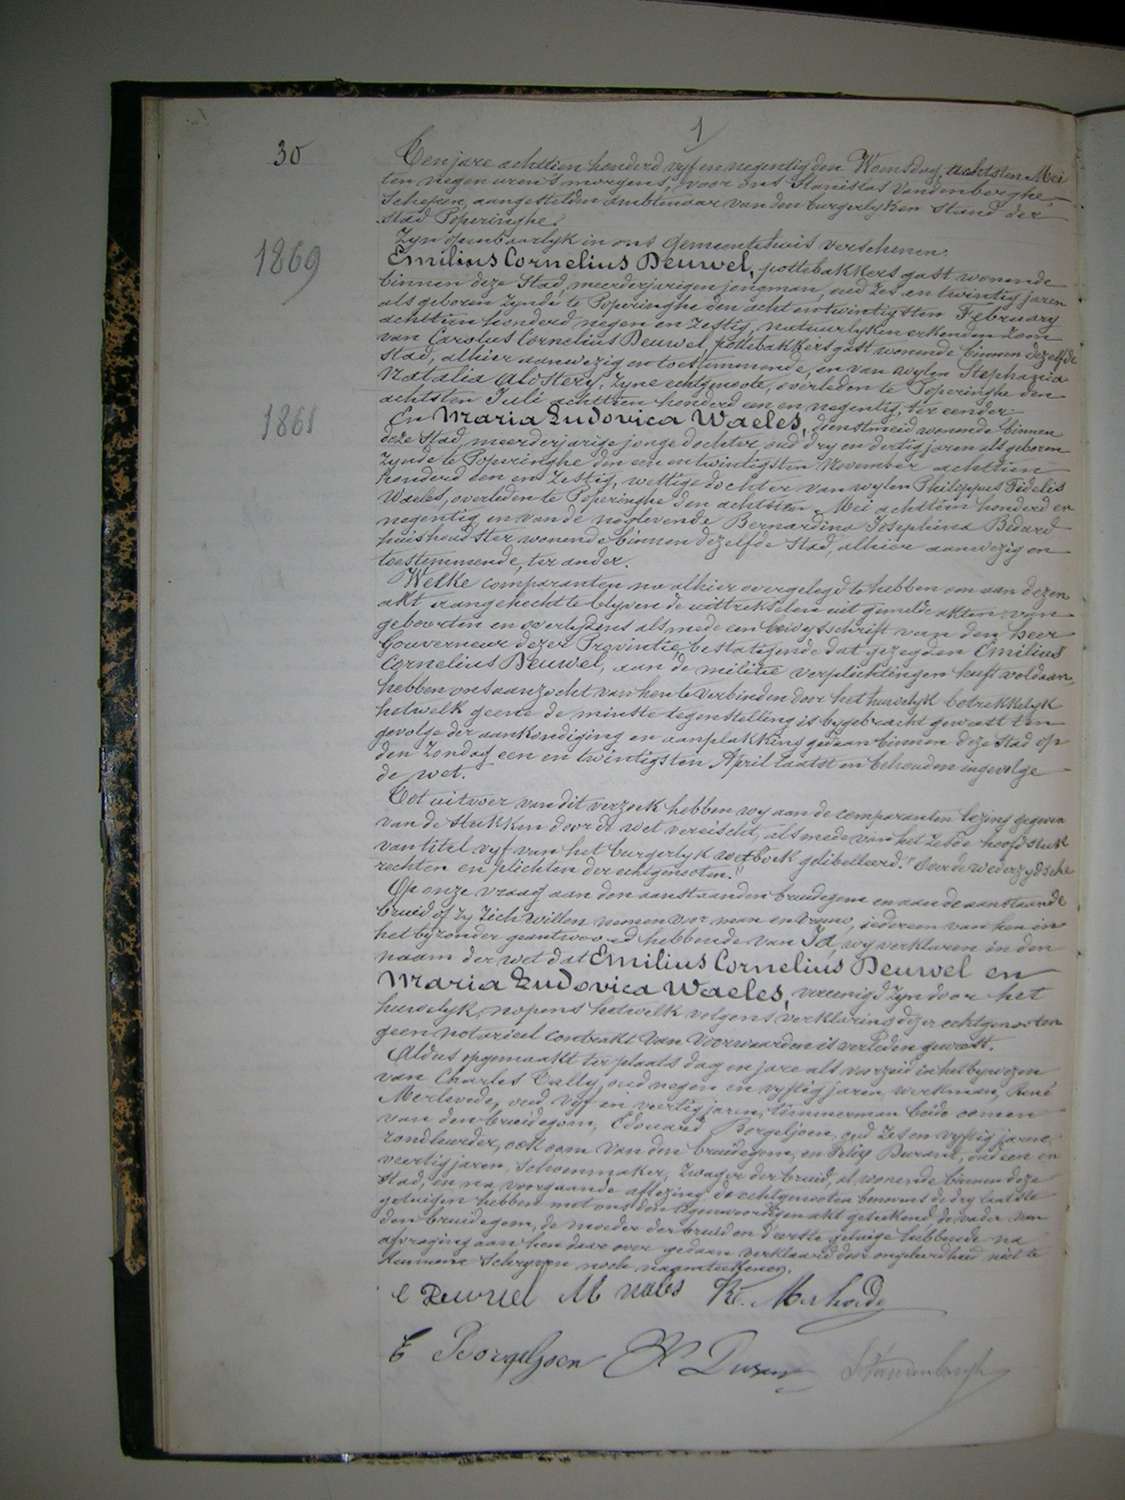 1
30
Ten jare achttien honderd vyf en negentig den Woensdag, achtsten Mei
ten negen uren 's morgens, voor ons Stanislas Vandenberghe,
Schepen, aangestelden ambtenaar van den burgerlyken stand der
stad Poperinghe.
Zyn openbaarlyk in ons Gemeentehuis verschenen:
1869
Emilius Cornelius Deuwel, pottebakkersgast wonende
binnen deze Stad, meerderjarigen jongman, oud zes en twintig jaren
als geboren zynde te Poperinghe den acht entwintigsten February
achttien honderd negen en zestig, natuurlyken erkenden zoon
van Carolus Cornelius Deuwel, pottebakkersgast wonende binnen dezelfde
stad, alhier aanwezig en toestemmende, en van wylen Stephania
Natalia Alostery, zyne echtgenoote, overleden te Poperinghe den
achtsten Juli achttien honderd een en negentig, ter eender
1861
En Maria Ludovica Waeles, dienstmeid wonende binnen
deze Stad, meerderjarige jonge dochter, oud dry en dertig jaren als geboren
zynde te Poperinghe den een entwintigsten November achttien
honderd een en zestig, wettige dochter van wylen Philippus Fidelis
Waeles, overleden te Poperinghe den achtsten Mei achttien honderd en
negentig en van de noglevende Bernardina Josephina Bedard
huishoudster wonende binnen dezelfde Stad, alhier aanwezig en
toestemmende, ter ander.
Welke comparanten na alhier overgelegd te hebben om aan dezen
akt aangehecht te blyven de uittrekselen uit gemelde akten van
geboorten en overlydens alsmede een bewysschrift van den heer
Gouverneur dezer Provintie, bestatigende dat gezegden Emilius
Cornelius Deuwel, aan de militie verplichtingen heeft voldaan,
hebben ons aanzocht van hen te verbinden door het huwelyk betrekkelyk
hetwelk geene de minste tegenstelling is bygebracht geweest ten
gevolge der aankondiging en aanplakking gedaan binnen deze Stad op
den Zondag een en twintigsten April laatst en behouden ingevolge
de wet.
Tot uitvoer van dit verzoek hebben wy aan de comparanten lezing gegeven
van de stukken door de wet vereischt, alsmede van het zesde hoofdstuk
van titel vyf van het burgerlyk wetboek gelibelleerd: "Over de wederzydsche
rechten en plichten der echtgenooten."
Op onze vraag aan den aanstaanden bruidegom en aan de aanstaande
bruid of zy zich willen nemen voor man en vrouw, iedereen van hen in
het byzonder geantwoord hebbende van Ja, wy verklaren in den
naam der wet dat Emilius Cornelius Deuwel en
Maria Ludovica Waeles, vereenigd zyn door het
huwelyk, nopens hetwelk volgens verklaring dezer echtgenooten
geen notarieel contrakt van voorwaarden is verleden geweest.
Aldus opgemaakt ter plaats dag en jare als voorzeid in het bywezen
van Charles Tally, oud negen en vyftig jaren, werkman, René
Merlevede, oud vyf en veertig jaren, timmerman beide oomen
van den bruidegom, Edouard Borgeljoen, oud zes en vyftig jaren,
, ook oom van den bruidegom, en Félix Durant, oud een en
veertig jaren, schoenmaker, zwager der bruid, al wonende binnen deze
Stad, en na voorgaande aflezing de echtgenooten benevens de dry laatste
getuigen hebben met ons dezen tegenwoordigen akt geteekend, de vader van
den bruidegom, de moeder der bruid en d'eerste getuige hebbende na
afvraging aan hen daar over gedaan verklaard door ongeleerdheid niet te
kunnen schryven noch naamteekenen.
E Deuwel M Waeles Re. Merlevede
E Borgeljoen F Durant S Vandenberghe